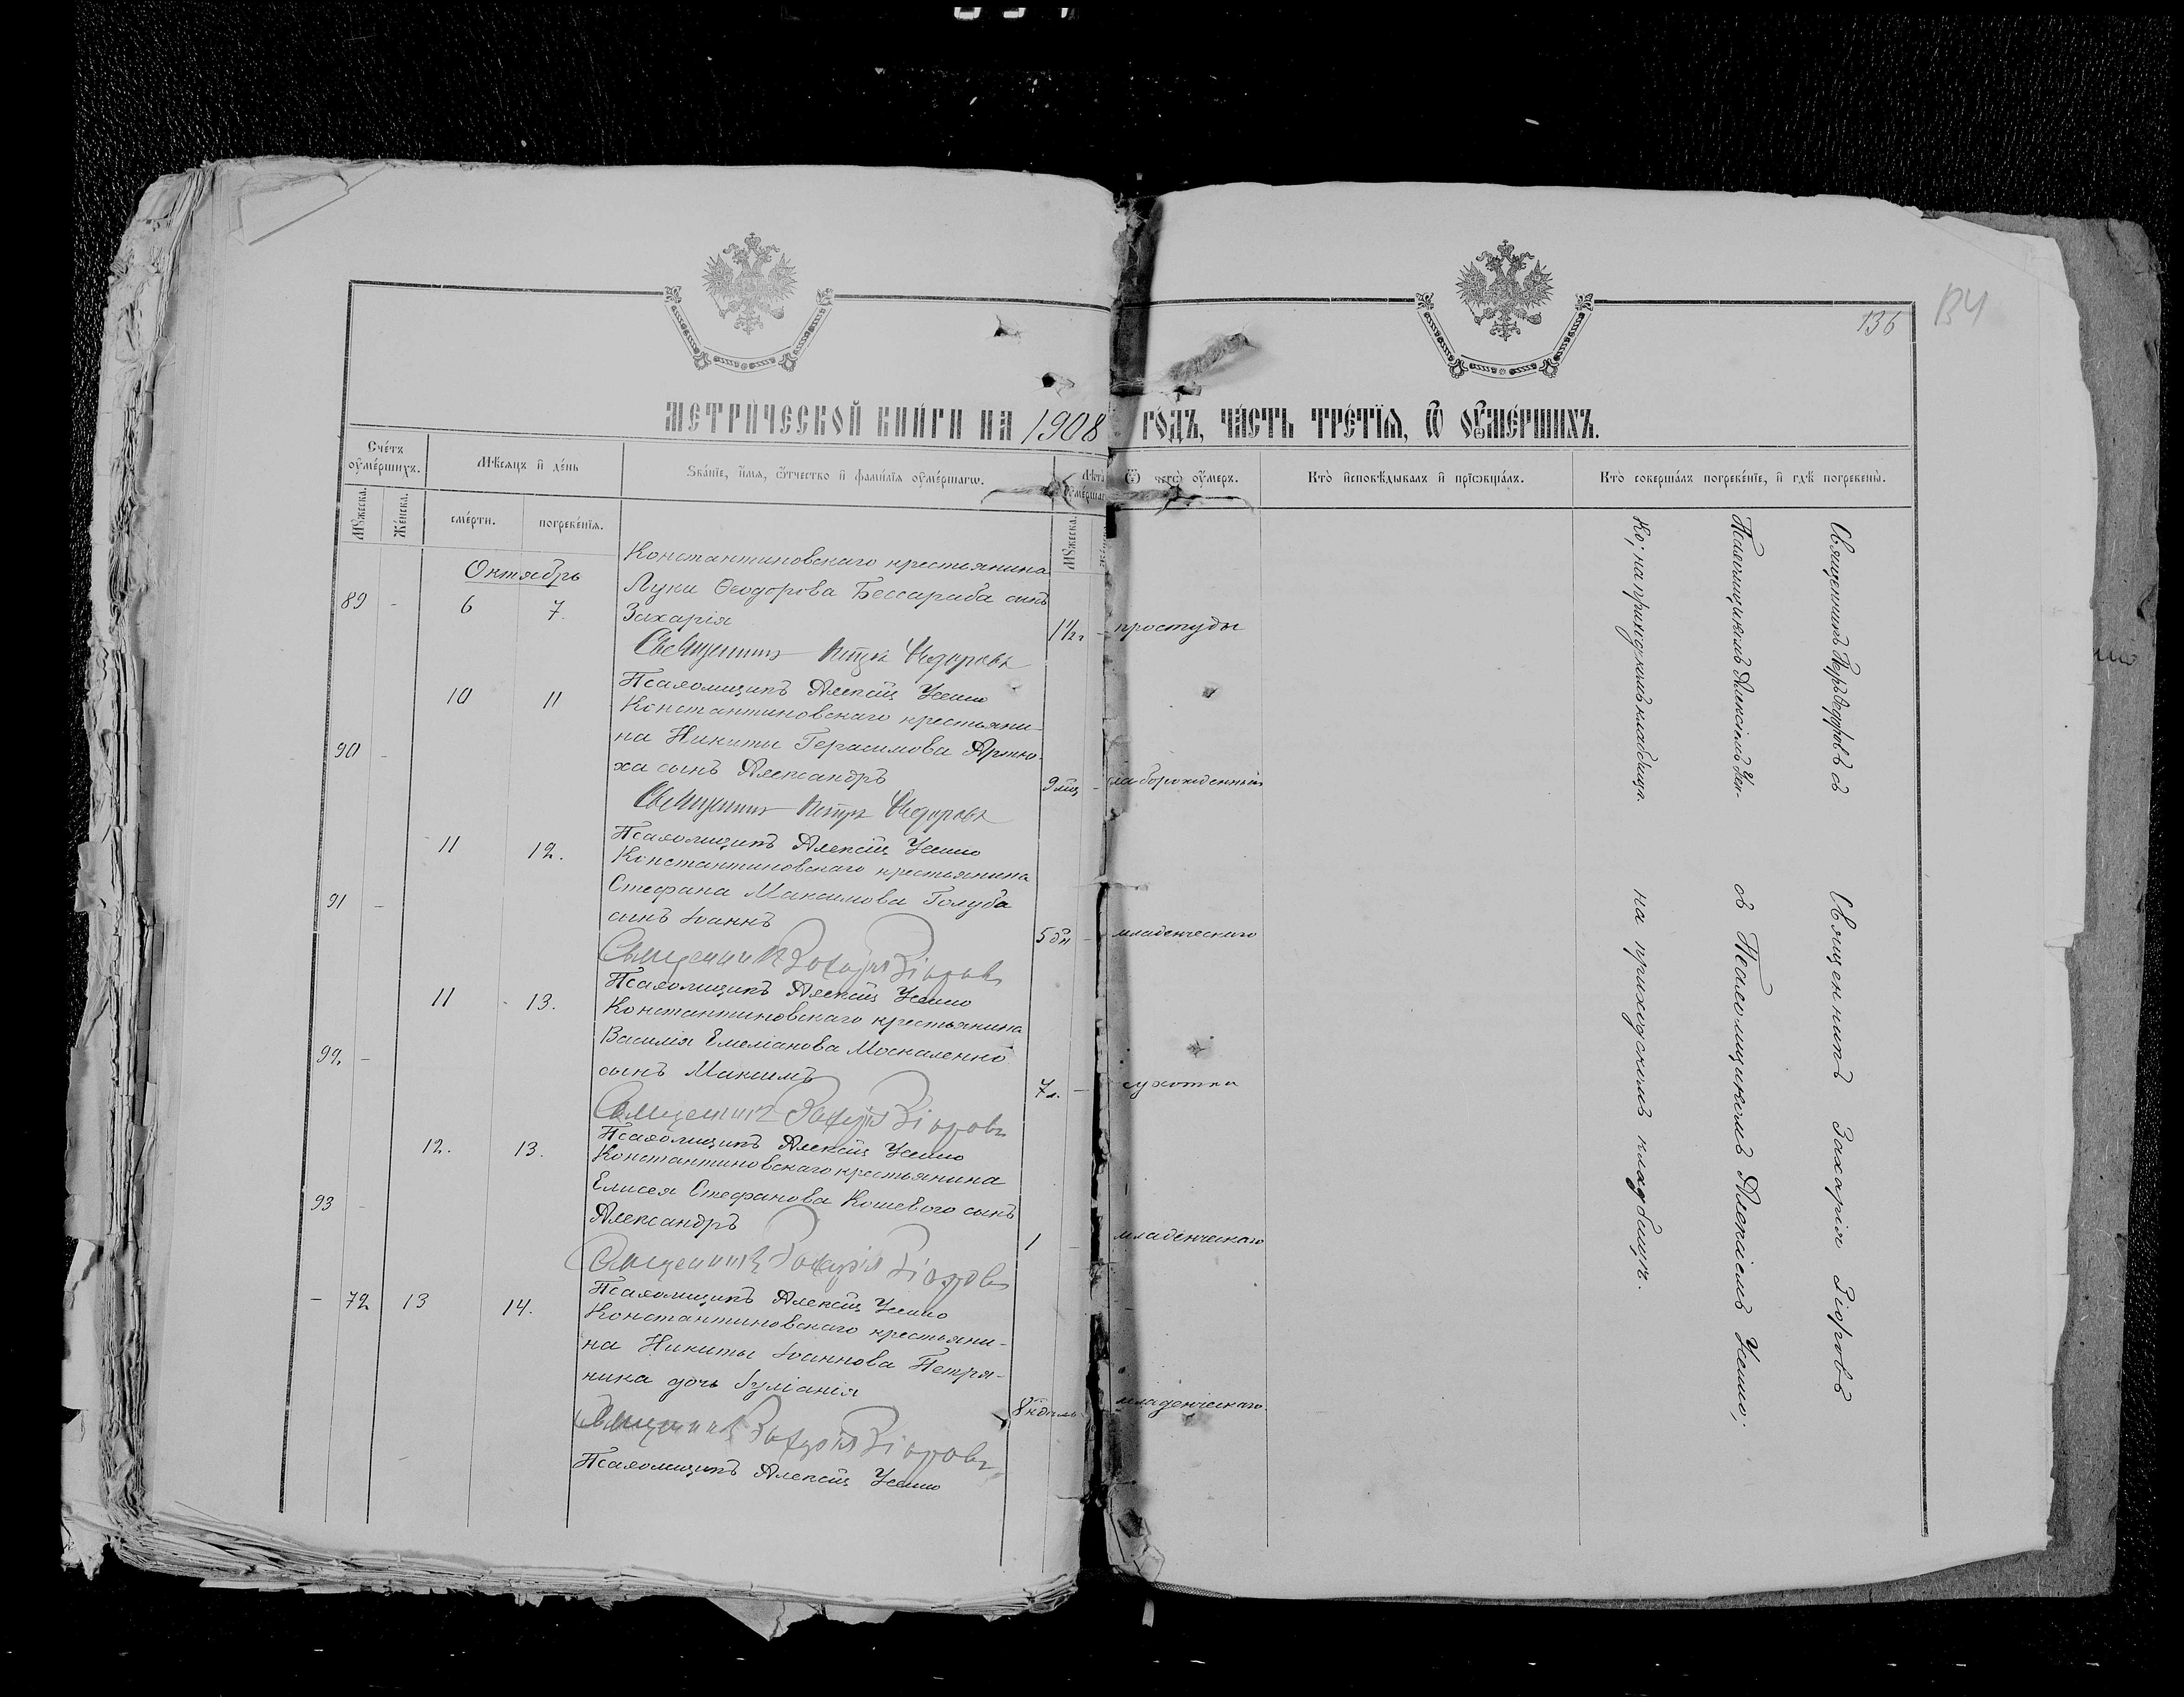 136
134
МЕТРИЧЕСКОЙ КНИГИ НА 1908 ГОДЪ, ЧАСТЬ ТРЕТІЯ, Ѿ ОУМЕРШИХЪ.
Счетъ оумершихъ.
Мѣсяцъ и день
Званіе, имя, ѿчество и фамилія оумершагѡ.
Лѣта оумершагѡ
Ѿ чегѡ оумеръ.
Кто исповѣдывалъ и пріѡбщалъ.
Кто совершалъ погребеніе, и гдѣ погребены.
Мꙋжеска.
Женска.
смерти.
погребенія.
Мꙋжеска.
Октябрь
89 - 6 7.
Константиновскаго крестьянина
Луки Ѳеодорова Бессараба сынъ
Захарія
1½ - простуды
Священникъ Петръ Федоровъ
Псаломщикъ Алексій Усенко
90 - 10 11
Константиновскаго крестьяни-
на Никиты Герасимова Артю-
ха сынъ Александръ
9 мц - слаборожденный
Священникъ Петръ Федоровъ
Псаломщикъ Алексій Усенко
91 - 11 12.
Константиновскаго крестьянина
Стефана Максимова Голуба
сынъ Іоаннъ
5 дн - младенческаго
Священникъ Захарія Зіоровъ
Псаломщикъ Алексій Усенко
92 - 11 - 13.
Константиновскаго крестьянина
Василія Емеліанова Москаленко
сынъ Максимъ
7 л. - сухотки
Священникъ Захарія Зіоровъ
Псаломщикъ Алексій Усенко
93 - 12. 13.
Константиновскаго крестьянина
Елисея Стефанова Кошевого сынъ
Александръ
1 - младенческаго
Священникъ Захарія Зіоровъ
Псаломщикъ Алексій Усенко
- 72 13 14.
Константиновскаго крестьяни-
на Никиты Іоаннова Петря-
ника дочь Іуліанія
младенческаго
Священникъ Захарія Зіоровъ
Псаломщикъ Алексій Усенко
Священникъ Петръ Ѳедоровъ съ
Псаломщикомъ Алексіемъ Усен-
ко; на приходскомъ кладбищѣ.
Священникъ Захарія Зіоровъ
съ Псаломщикомъ Алексіемъ Усенко;
на приходскомъ кладбищѣ.